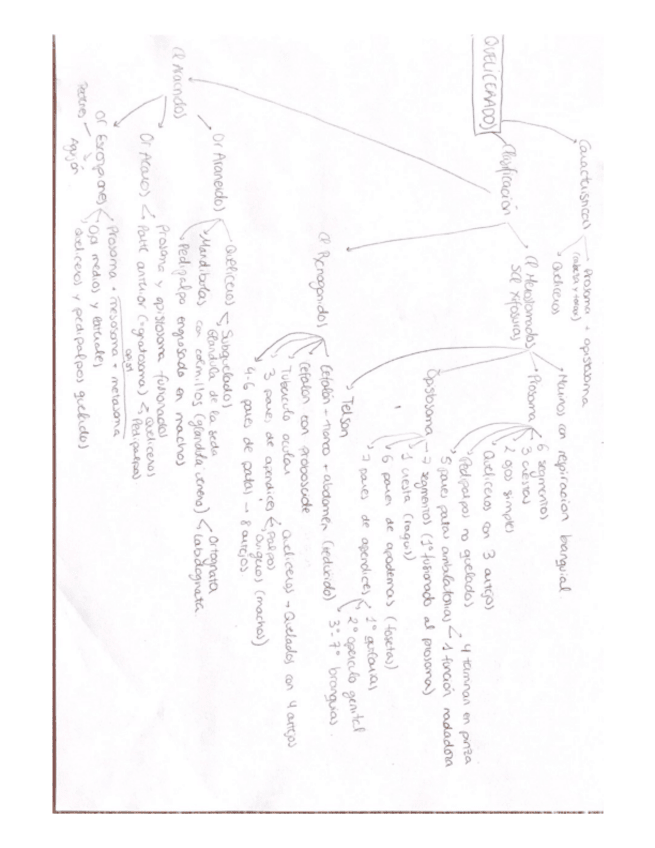 QUELICERADOS
Características
Prosoma + opistosoma
(cabeza y tronco)
Quelíceros
Clasificación
Cl Merostomados
SCl Xifosuros
Marinos con respiración branquial
Prosoma
6 segmentos
3 crestas
2 ojos simples
Quelíceros con 3 artejos
Pedipalpos no quelados
5 pares patas ambulatorias
4 terminan en pinza
1 función nadadora
Opistosoma
7 segmentos (1º fusionado al prosoma)
1 cresta (raquis)
6 pares de apodemas (fosetas)
7 pares de apéndices
1º quilarias
2º opérculo genital
3º-7º branquias.
Telson
Cl Picnogónidos
Cefalón - tronco + abdomen (reducido)
Cefalón con probóscide
Tubérculo ocular
3 pares de apéndices
Quelíceros → Quelados con 4 artejos
Palpos
Ovígeros (machos)
4-6 pares de patas → 8 artejos
Cl Arácnidos
Or Araneidos
Quelíceros
Subquelados
Glándula de la seda
Mandíbulas con colmillos (glándula veneno)
Ortognata
Labidognata
Pedipalpo engrosado en machos
Or Ácaros
Prosoma y opistosoma fusionados
Parte anterior (=gnatosoma)
Quelíceros
Pedipalpos
Or Escorpiones
Aguijón
Prosoma + mesosoma + metasoma
opist
Ojos medios y laterales
Quelíceros y pedipalpos quelados